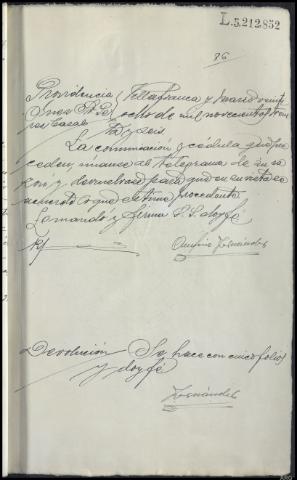 L.5.212.852
86
Providencia Villafranca y marzo veinti
Juez Sr. ocho de mil novecientos trein
ta y seis
La comunicación y cédula que pre
ceden, únanse al telegrama de su ra
zón y devuélvase para que en su vista se
acuerde lo que estime procedente
Lo mandó y firma S.S. doy fé
Fernández
Devolución Se hace con cinco folios
y doy fé
Fernández